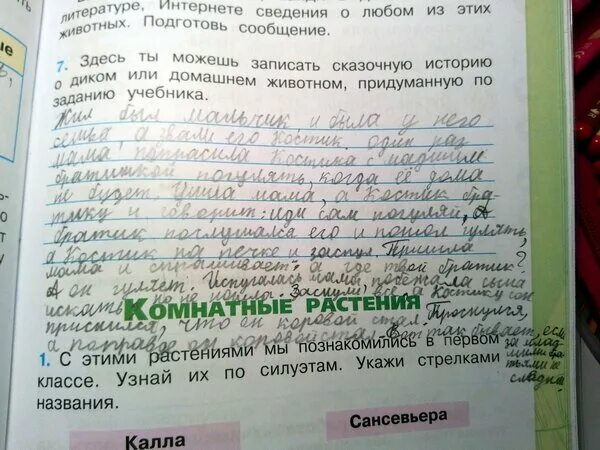 литературе, Интернете сведения о любом из этих
животных. Подготовь сообщение.
7. Здесь ты можешь записать сказочную историю
о диком или домашнем животном, придуманную по
заданию учебника.
Жил был мальчик и была у него
семья, а звали его Костик, один раз
мама попрасила Костика с
братишкой погулять, когда её дома
не будет. Ушла мама, а Костик бра-
тику и говорит: иди сам погуляй, А
братик послушался его и пошол гулять,
а Костик на печке и заспул. Пришла
мама и спрашивает: а где твой братик?
А он гуляет. Испугалась мама, побежала сына
искать, но не нашла. Заснули все, а Костику сон
КОМНАТНЫЕ РАСТЕНИЯ
приснился, что он коровой стал. Проснулся,
а поправде он коровой стал. Вот так бывает, если
за млад-
шими бра-
тьями не
следить
1. С этими растениями мы познакомились в первом
классе. Узнай их по силуэтам. Укажи стрелками
названия.
Калла
Сансевьера